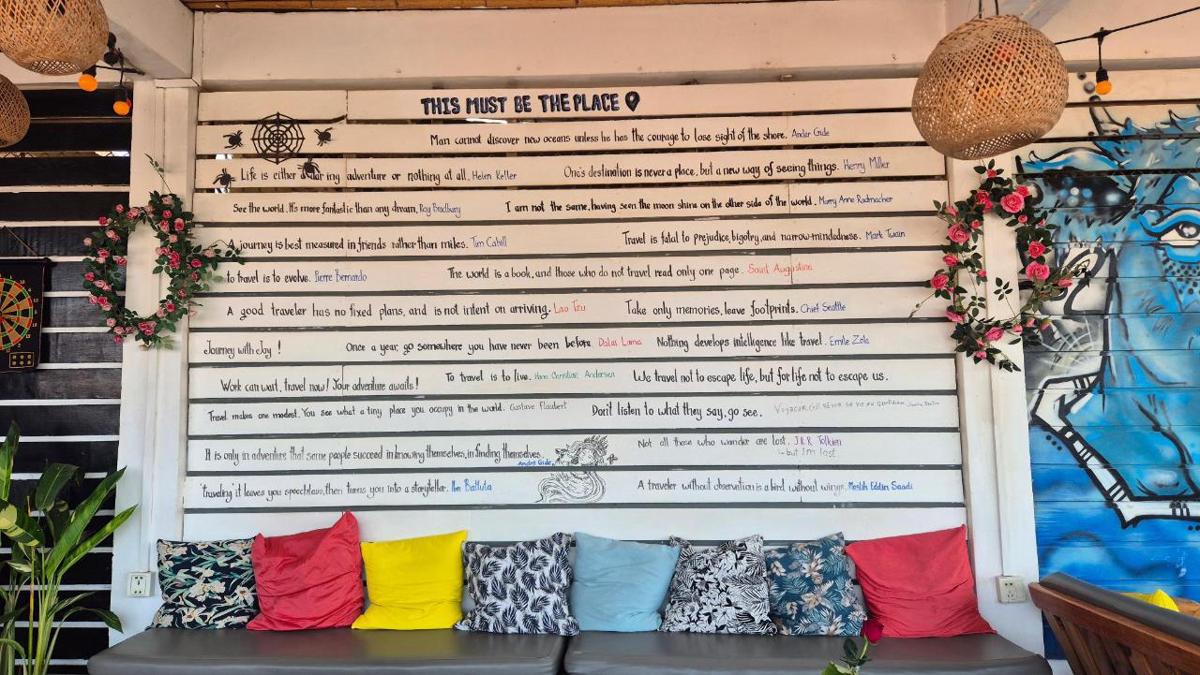 THIS MUST BE THE PLACE
Man cannot discover new oceans unless he has the courage to lose sight of the shore. Andar Gide
Life is either a daring adventure or nothing at all. Helen Keller One's destination is never a place, but a new way of seeing things. Henry Miller
See the world. It's more fantastic than any dream. Ray Bradbury I am not the same, having seen the moon shine on the other side of the world. Marry Anne Radmacher
A journey is best measured in friends rather than miles. Tim Cahill Travel is fatal to prejudice, bigotry, and narrow-mindedness. Mark Twain
to travel is to evolve. Pierre Bernardo The world is a book, and those who do not travel read only one page. Saint Augustine
A good traveler has no fixed plans, and is not intent on arriving. Lao Tzu Take only memories, leave footprints. Chief Seattle
Journey with Joy ! Once a year, go somewhere you have never been before Dalai Lama Nothing develops intelligence like travel. Emile Zola
Work can wait, travel now! Your adventure awaits! To travel is to live. Hans Christian Andersen We travel not to escape life, but for life not to escape us.
Travel makes one modest. You see what a tiny place you occupy in the world. Gustave Flaubert Don't listen to what they say, go see.
It is only in adventure that some people succeed in knowing themselves, in finding themselves. André Gide Not all those who wander are lost. J.R.R Tolkien
but I'm lost
"traveling" it leaves you speechless, then turns you into a storyteller. Ibn Battuta A traveler without observation is a bird without wings. Moslih Eddin Saadi